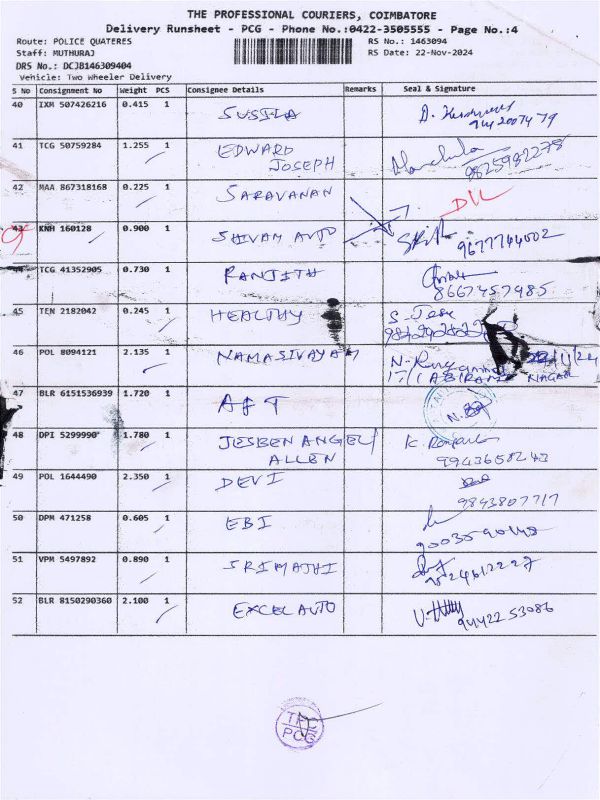 THE PROFESSIONAL COURIERS, COIMBATORE
Delivery Runsheet - PCG - Phone No.:0422-3505555 - Page No.:4
Route: POLICE QUATERES RS No.: 1463094
Staff: MUTHURAJ RS Date: 22-Nov-2024
DRS No.: DCJB146309404
Vehicle: Two Wheeler Delivery
S No Consignment No Weight PCS Consignee Details Remarks Seal & Signature
40 IXM 507426216 0.415 1 SUSILA
41 TCG 50759284 1.255 1 EDWARD
JOSEPH
42 MAA 867318168 0.225 1 SARAVANAN
43 KNH 160128 0.900 1 SHIVAM AUTO 9677744002
TCG 41352905 0.730 1 RANJITH
8667457485
45 TEN 2182042 0.245 1 HEALTHY
46 POL 8094121 2.135 1 NAMASIVAYAM
NAGAR
47 BLR 6151536939 1.720 1 AFT
48 DPI 5299990 1.780 1 JESBEN ANGEL/
ALLEN 9943658243
49 POL 1644490 2.350 1 DEVI
9843807717
50 DPM 471258 0.605 1 EBI
51 VPM 5497892 0.890 1 SRIMATHI
52 BLR 8150290360 2.100 1 EXCEL AUTO 94422 53086
TPC
PCG